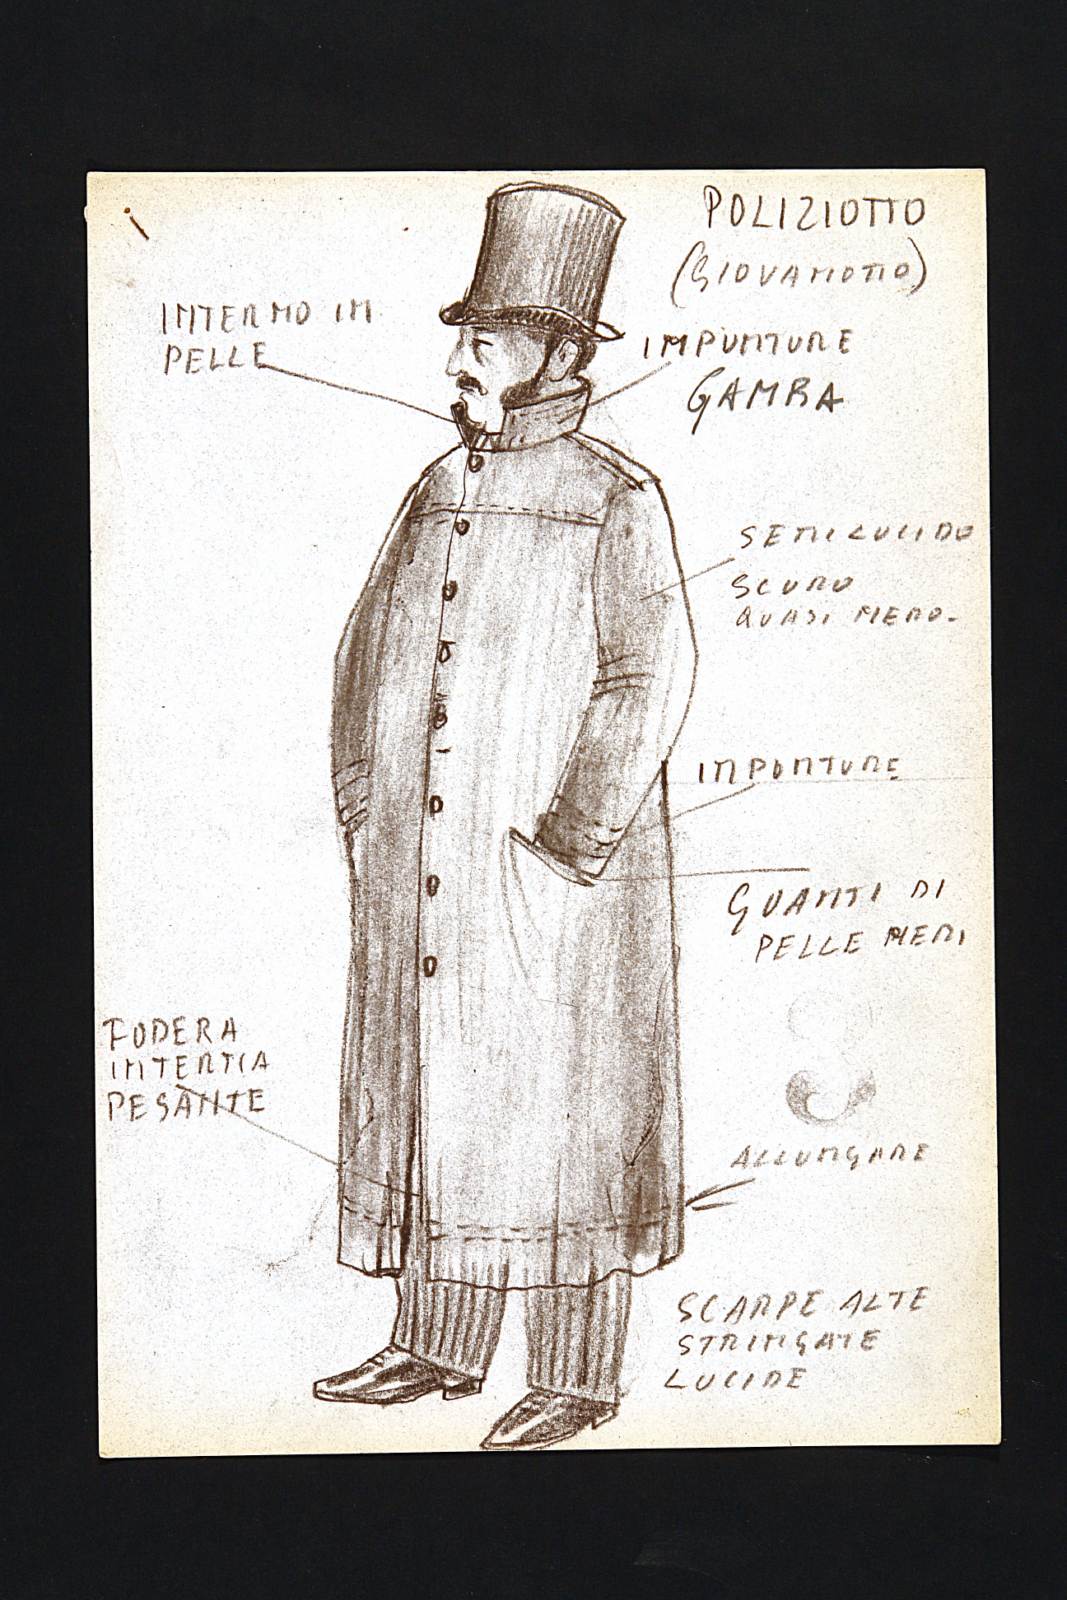 POLIZIOTTO
(GIOVANOTTO)
INTERNO IN
PELLE
IMPUNTURE
GAMBA
SEMILUCIDO
SCURO
QUASI NERO-
IMPUNTURE
GUANTI DI
PELLE NERI
FODERA
INTERNA
PESANTE
ALLUNGARE
SCARPE ALTE
STRINGATE
LUCIDE